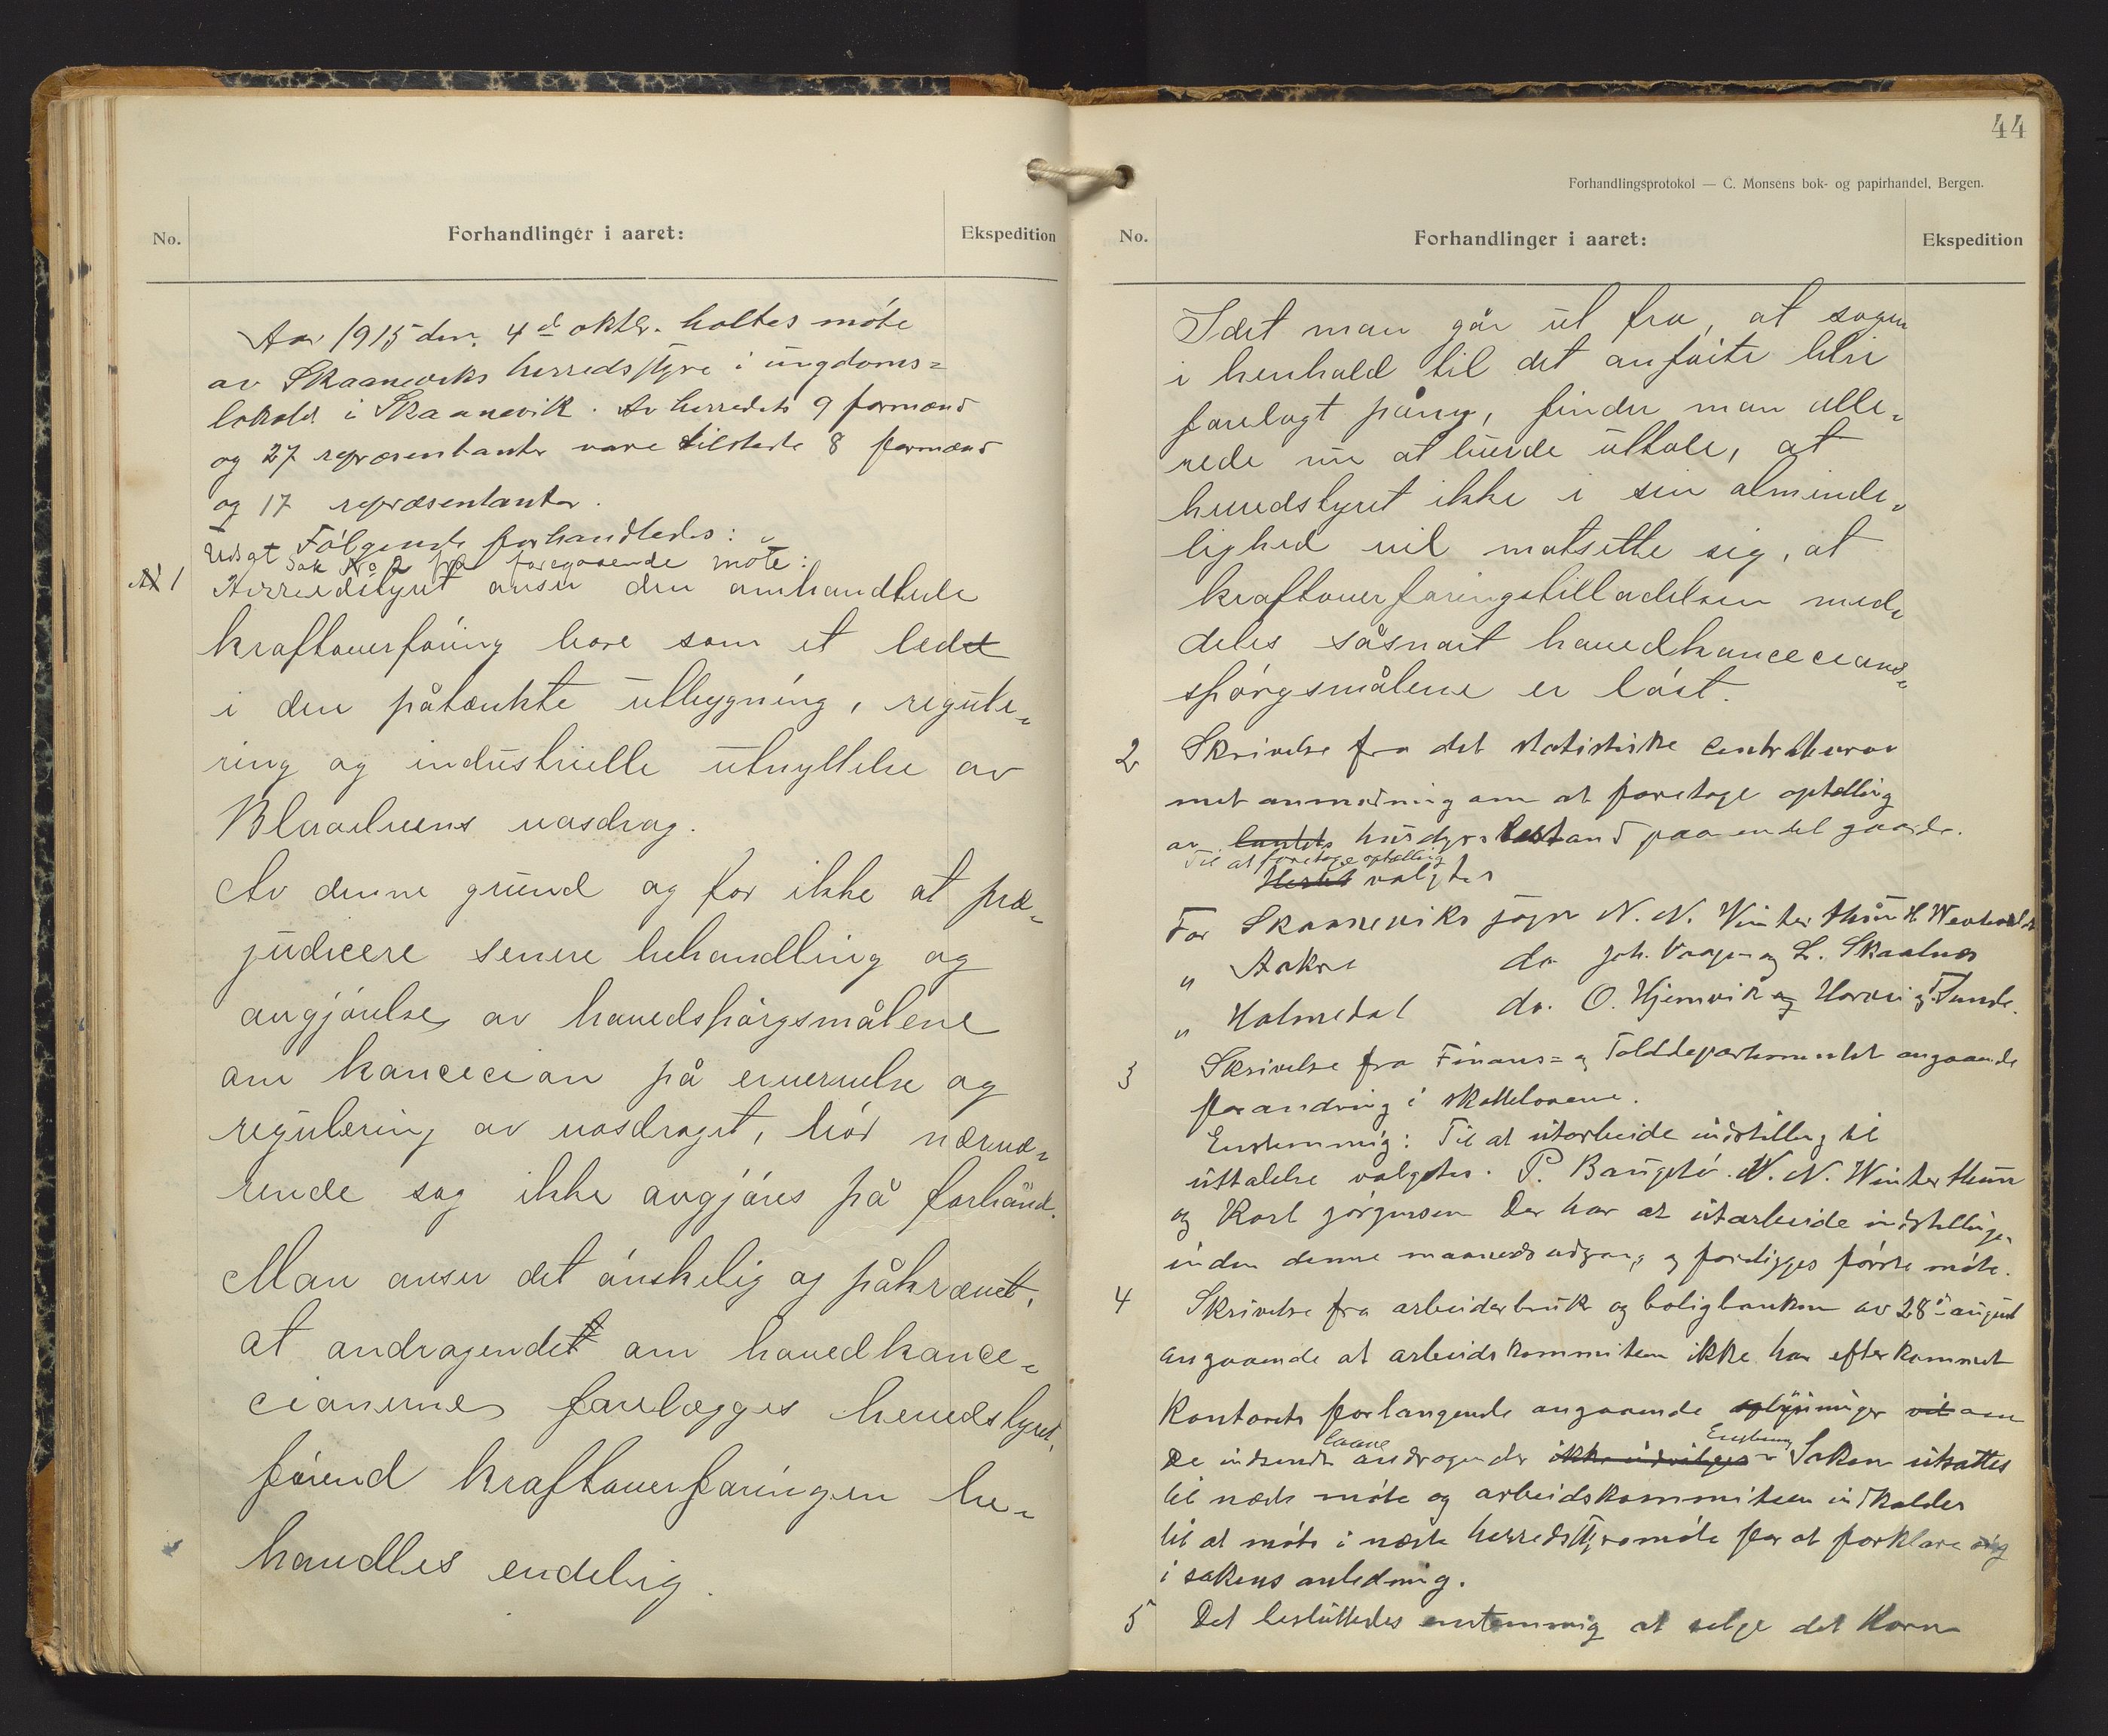 No.
Forhandlinger i aaret:
Ekspedition
Aar 1915 den. 4de oktbr. holtes möte
av Skaaneviks herredsstyre i ungdoms=
lokalet i Skaanevik. Av herredets 9 formænd
og 27 repræsentanter vare tilstede 8 formænd
og 17 repræsentanter.
Følgende forhandledes:
Utsat Sak No 2 fra foregaaende møte:
1 Herredstyret anser den omhandlede
kraftoverföring bare som et ledet
i den påtænkte utbygning, regule=
ring og industrielle utnyttelse av
Blaaelvens vasdrag.
Av denne grund og for ikke at præ=
judicere senere behandling og
avgjörelse av hovedspörgsmålene
om koncecion på erhvervelse og
regulering av vasdraget, bör nærvæ=
rende sag ikke avgjöres på forhånd.
Man anser det önskelig og påkrævet,
at andragendet om hovedkonce=
cionerne forelægges herredstyret,
förend kraftoverföringen be=
handles endelig.
44
Forhandlingsprotokol — C. Monsens bok- og papirhandel, Bergen.
No.
Forhandlinger i aaret:
Ekspedition
Idet man går ut fra, at sagen
i henhold til det anförte blir
forelagt påny, finder man alle=
rede nu at burde uttale, at
herredstyret ikke i sin alminde=
lighed vil motsette sig, at
kraftoverföringstilladelsen med=
deles såsnart hovedkoncecions=
spörgsmålene er löst.
2 Skrivelse fra det statistiske Centralbyraa
met anmodning om at foretage optelling
av landets husdyrsbestand paa en del gaarde.
Til at foretage optelling
Hertil valgtes
For Skaaneviks sogn N. N. Vinter Thun H.
" Aakre do Joh. Vaage og L. Skaalnes
" Holmedal do. O. Hjemvik og Tunde.
3 Skrivelse fra Finans= og Tolddepartementet angaaende
forandring i skattelovene.
Enstemmig: Til at utarbeide indstilling til
uttalelse valgtes. P. Baugstö. N. N. Winter Thun
og Karl Jörgensen Der har at utarbeide indstillingen
inden denne maaneds udgang og foreligges förste möte.
4 Skrivelse fra arbeiderbruk og boligbanken av 28de august
angaaende at arbeidskommiteen ikke har efterkommet
Kontorets forlangende angaaende oplysninger vit om
De indsendte laane andragender ikke indvilges Enstemmig Saken utsattes
til næste möte og arbeidskommiteen indkaldes
til at möte i næste herredsstyremöte for at forklare sig
i sakens anledning.
5 Det besluttedes enstemmig at selge det Korn